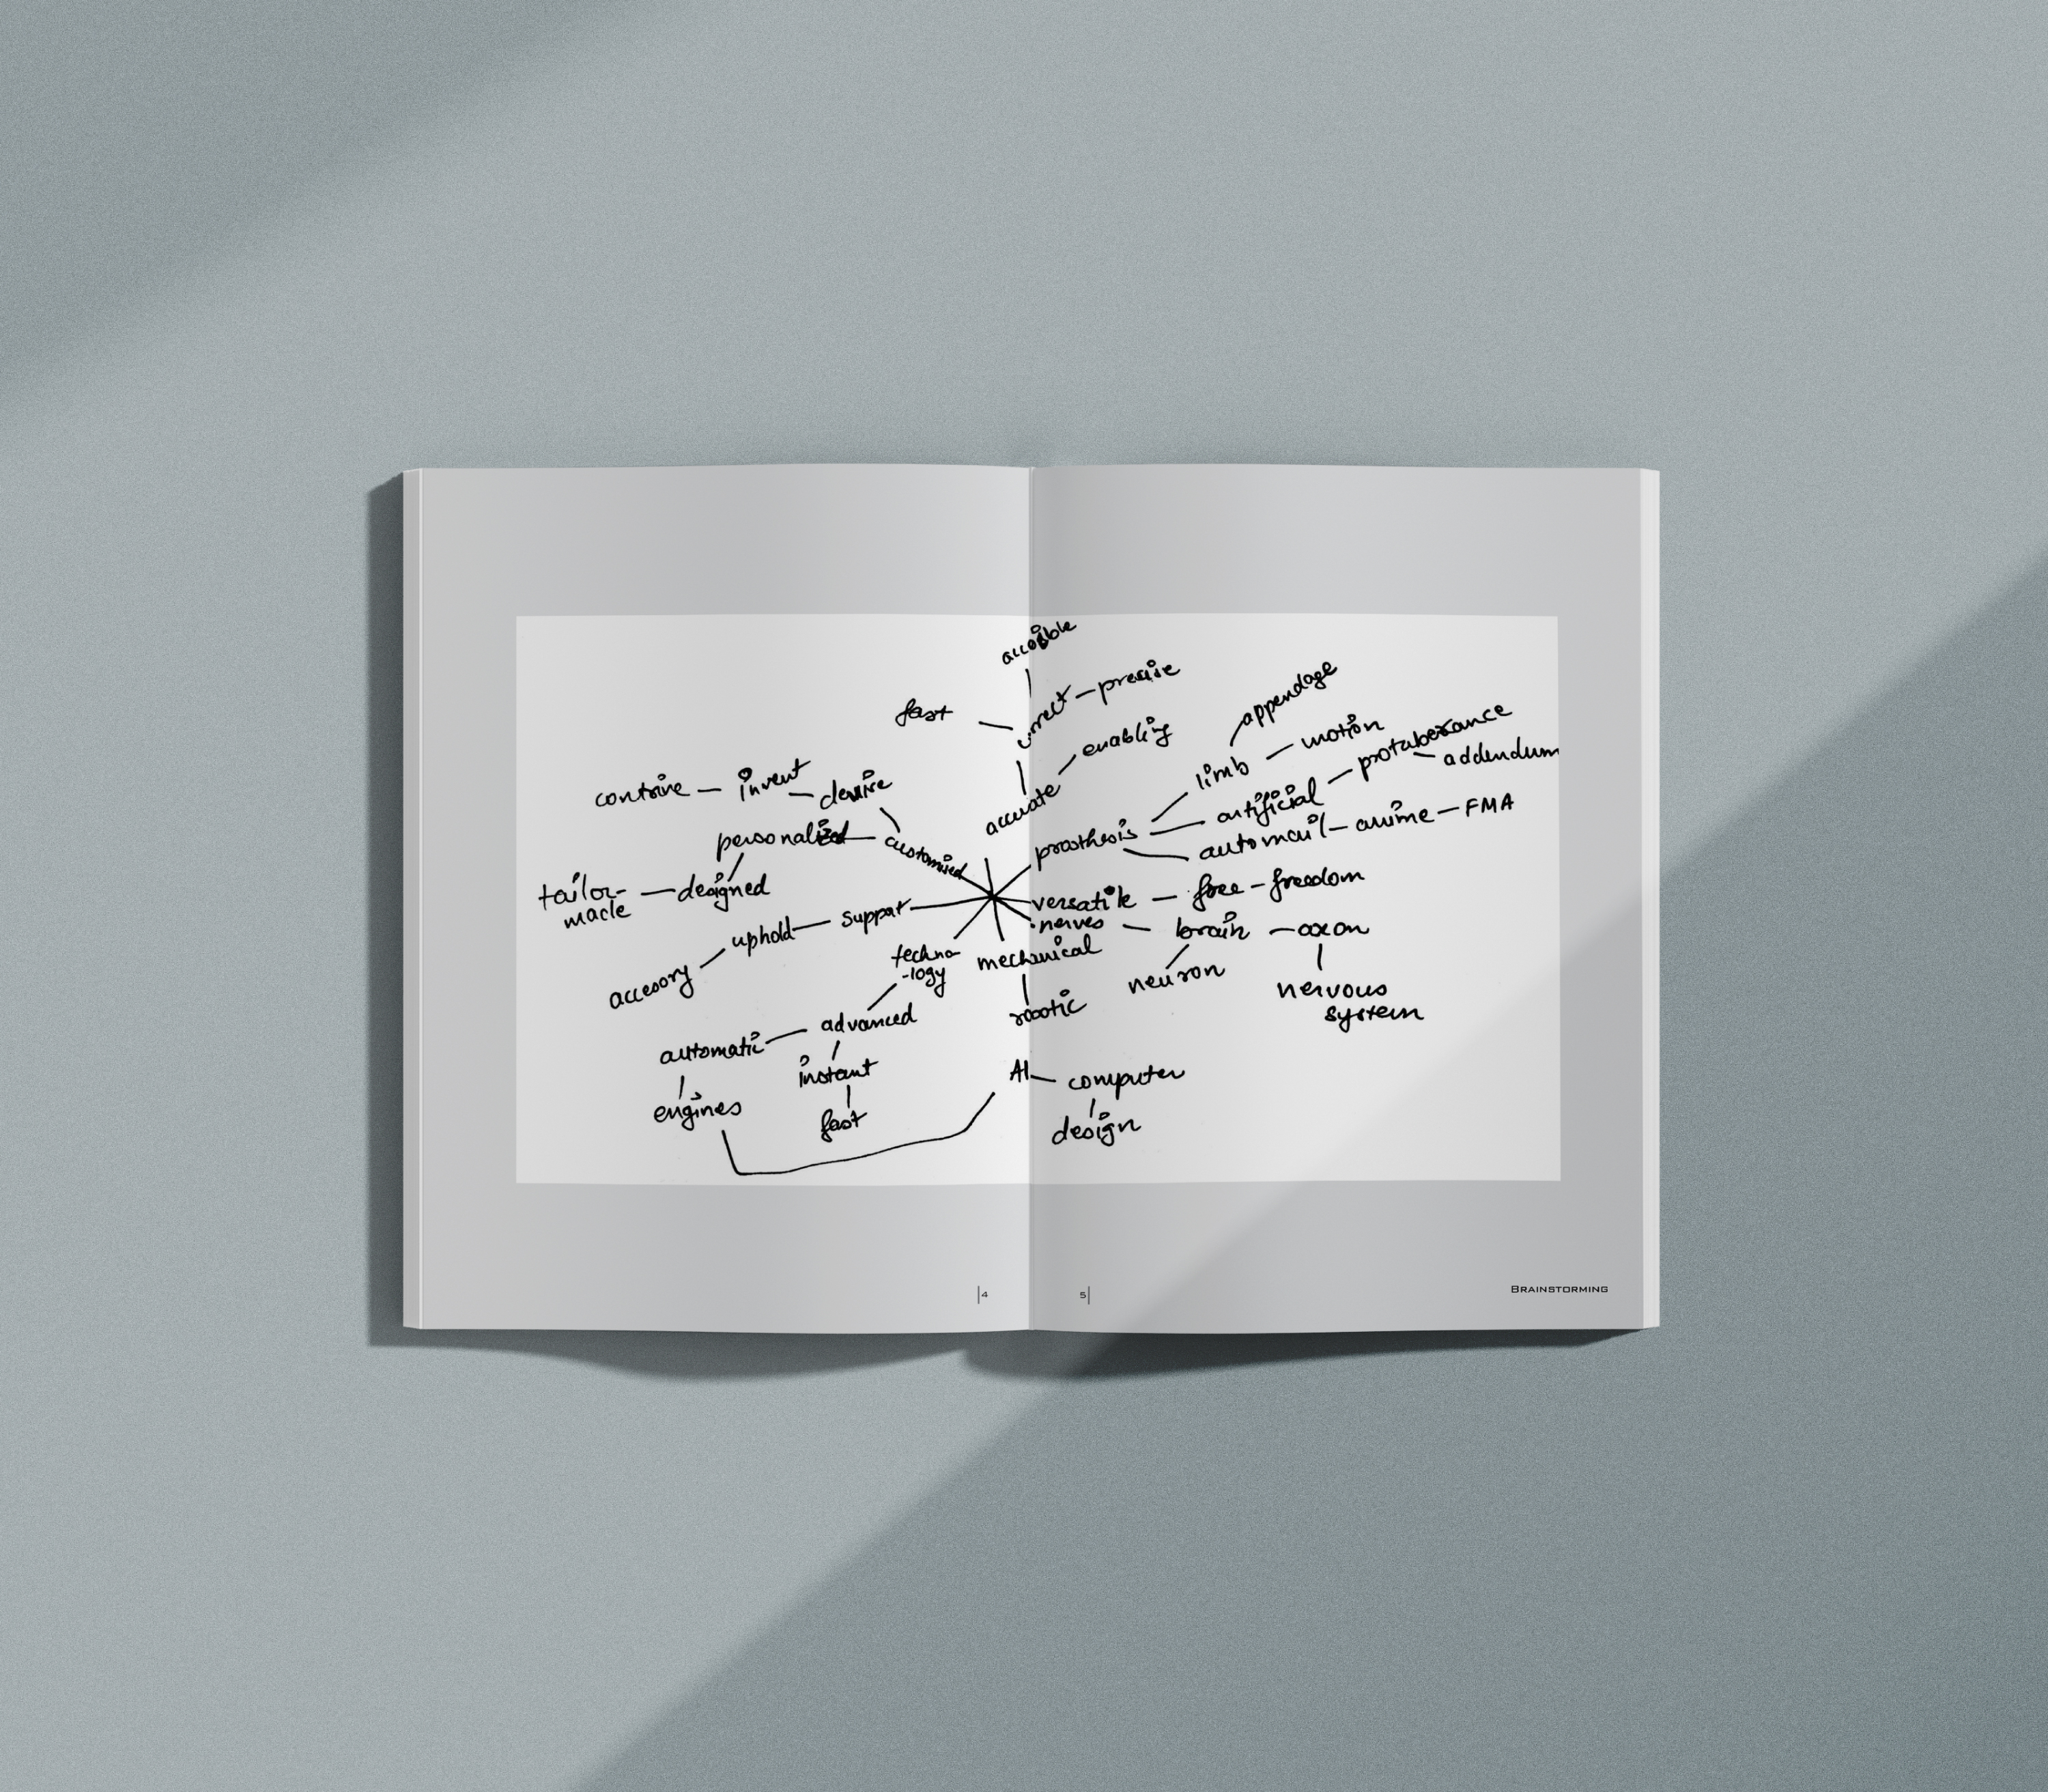 accesible
correct - precise
fast
enabling
accurate
appendage
limb - motion
prothesis
artificial - protuberance
addendum
automail - anime - FMA
contrive - invent - devise
personalized
customised
tailor-
made
designed
versatile - free - freedom
nerves - brain - axon
neuron
nervous
system
support
uphold
accesory
techno
-logy
mechanical
robotic
advanced
automatic
instant
fast
engines
AI - computer
design
4
5
BRAINSTORMING